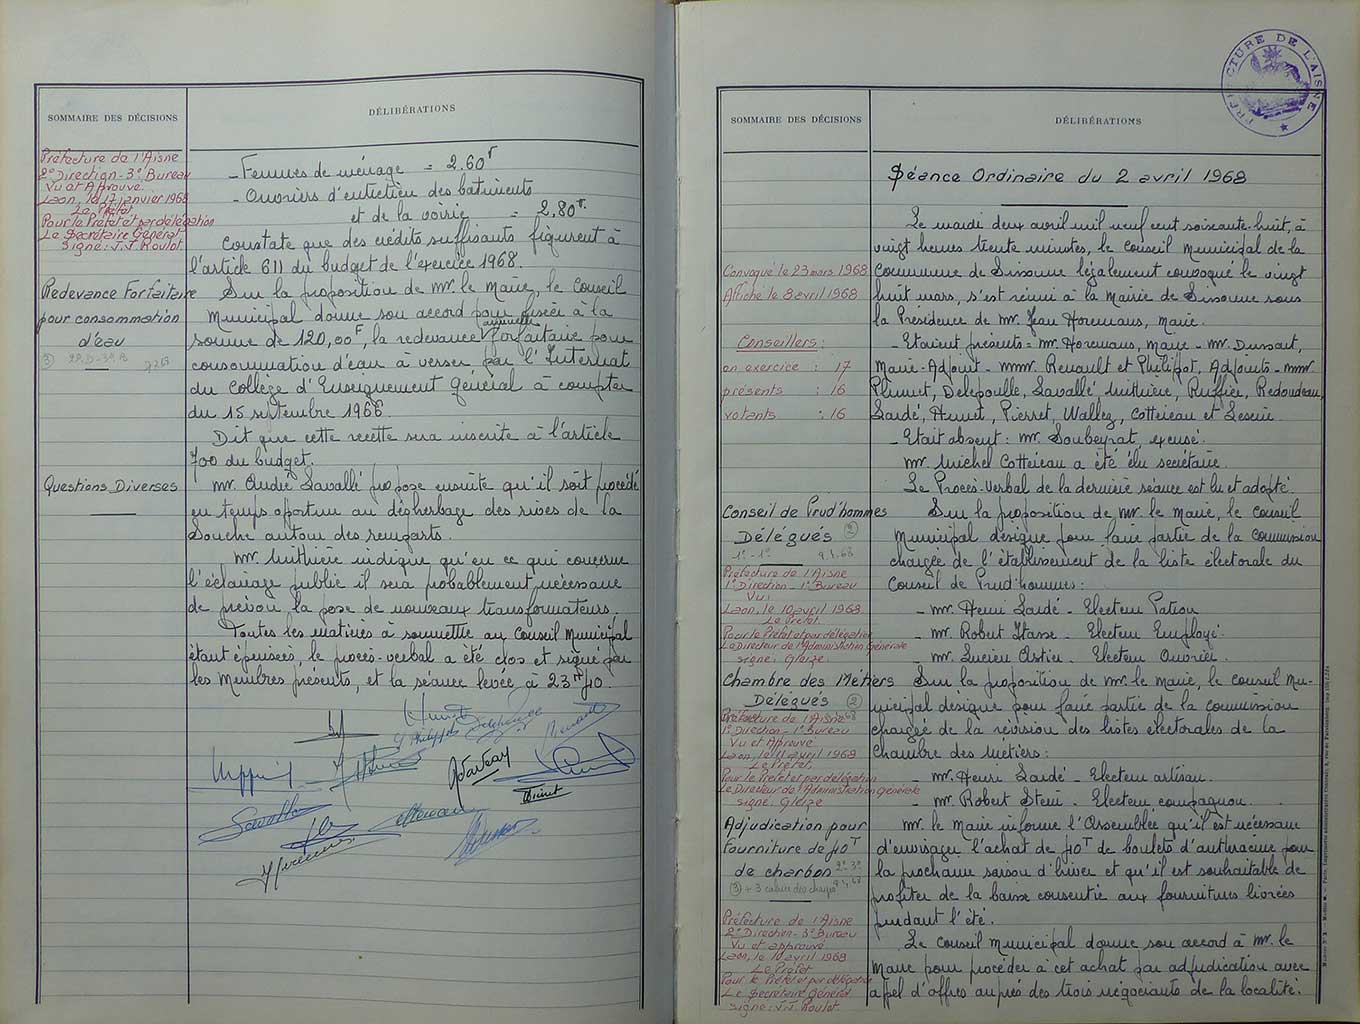 SOMMAIRE DES DÉCISIONS
DÉLIBÉRATIONS
Préfecture de l'Aisne
2° Direction - 3° Bureau
Vu et Approuvé
Laon, le 17 janvier 1968
Le Préfet
Pour le Préfet et par délégation
Le Secrétaire Général
Signé: J.J. Roulot
- Femmes de ménage = 2.60F
- Ouvriers d'entretien des batiments
et de la voirie = 2,80F.
Constate que des crédits suffisants figurent à
l'article 611 du budget de l'exercice 1968.
Redevance Forfaitaire
pour consommation
d'eau
Sur la proposition de Mr. le Maire, le Conseil
Municipal donne son accord pour fixée à la
somme de 120,00F, la redevance annuelle forfaitaire pour
consommation d'eau à verser par l'Internat
du Collège d'Enseignement Général à compter
du 15 septembre 1966.
Dit que cette recette sera inscrite à l'article
700 du budget.
Questions Diverses
Mr. André Lavallé propose ensuite qu'il soit procédé
en temps opportun au désherbage des rives de la
Souche autour des remparts.
Mr. Muthière indique qu'en ce qui concerne
l'éclairage public il sera probablement nécessaire
de prévoir la pose de nouveaux transformateurs.
Toutes les matières à soumettre au Conseil Municipal
étant épuisées, le procès-verbal a été clos et signé par
les Membres présents, et la séance levée à 23H40.
PRÉFECTURE DE L'AISNE
SOMMAIRE DES DÉCISIONS
DÉLIBÉRATIONS
Séance Ordinaire du 2 avril 1968
Le mardi deux avril mil neuf cent soixante-huit, à
vingt heures trente minutes, le Conseil Municipal de la
Commune de Sissonne légalement convoqué le vingt
huit mars, s'est réuni à la Mairie de Sissonne sous
la Présidence de Mr. Jean Horemans, Maire.
Convoqué le 23 mars 1968
Affiché le 8 avril 1968
Conseillers:
en exercice : 17
présents : 16
votants : 16
- Etaient présents = Mr. Horemans, Maire - Mr. Dussart,
Maire-Adjoint - MMr. Renault et Philippot, Adjoints - MMr
Plumet, Delepouille, Lavallé, Muthière, Ruffier, Redoudeau,
Lardé, Hennet, Pierret, Wallez, Cottereau et Leseur.
- Etait absent: Mr. Soubeyrat, excusé.
Mr. Michel Cottereau a été élu secrétaire.
Le Procès-Verbal de la dernière séance est lu et adopté.
Conseil de Prud'hommes
Délégués
Préfecture de l'Aisne
1° Direction - 1° Bureau
Vu:
Laon, le 10 avril 1968
Le Préfet
Pour le Préfet et par délégation
Le Directeur de l'Administration Générale
signé: Gleize
Sur la proposition de Mr. le Maire, le Conseil
Municipal désigne pour faire partie de la commission
chargée de l'établissement de la liste électorale du
Conseil de Prud'hommes:
- Mr. Henri Lardé - Electeur Patron
- Mr. Robert Hasse - Electeur Employé.
- Mr. Lucien Astier - Electeur Ouvrier.
Chambre des Métiers
Délégués
Préfecture de l'Aisne
1° Direction - 1° Bureau
Vu et Approuvé
Laon, le 11 avril 1968
Le Préfet
Pour le Préfet et par délégation
Le Directeur de l'Administration Générale
signé: Gleize
Sur la proposition de Mr. le Maire, le Conseil Mu-
nicipal désigne pour faire partie de la commission
chargée de la révision des listes électorales de la
Chambre des Métiers:
- Mr. Henri Lardé - Electeur artisan.
- Mr. Robert Stein - Electeur compagnon.
Adjudication pour
fourniture de 40T
de charbon
(3) + 3 cahier des charges
Préfecture de l'Aisne
2° Direction - 3° Bureau
Vu et approuvé
Laon, le 10 avril 1968
Le Préfet
Pour le Préfet et par délégation
Le Secrétaire Général
signé: J.J. Roulot
Mr. le Maire informe l'Assemblée qu'il est nécessaire
d'envisager l'achat de 40T de boulets d'anthracine pour
la prochaine saison d'hiver et qu'il est souhaitable de
profiter de la baisse consentie aux fournitures livrées
pendant l'été.
Le Conseil Municipal donne son accord à Mr. le
Maire pour procéder à cet achat par adjudication avec
appel d'offres auprès des trois négociants de la localité.